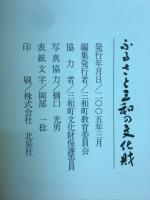 ふるさと三和の文化財
発行年月日／二〇〇五年三月
編集発行者／三和町教育委員会
協力者／三和町文化財保護委員
写真協力／樋口光男
表紙文字／岡部一稔
印刷／株式会社 北星社